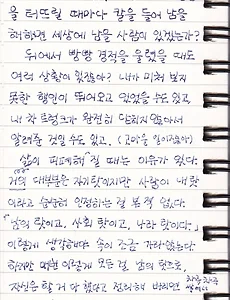 을 터뜨릴 때마다 칼을 들어 남을
해하면 세상에 남을 사람이 있겠는가?
뒤에서 빵빵 경적을 울렸을 때도
역시 상황이 있잖아? 내가 미처 보지
못한 행인이 뛰어오고 있었을 수도 있고,
내 차 트렁크가 완전히 닫히지 않아서
알려준 것일 수도 있고. (고마운 일이잖아)
삶이 피폐해 질 때는 이유가 있다.
거의 대부분은 자기 탓이지만 사람이 내 탓
이라고 순순히 인정하는 걸 본 적 없다.
남의 탓이고, 사회 탓이고, 나라 탓이다.
이렇게 생각해야 속이 조금 가라앉는다.
하지만 매번 이렇게 모든 걸 남의 탓으로,
자신을 할 거 다 했다고 정리해 버리면
차곡차곡